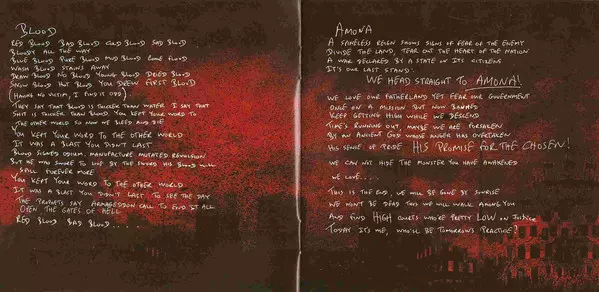 Blood
Red Blood Bad Blood Cold Blood Sad Blood
Bloody all the way
Blue Blood Pure Blood Mud Blood Come Flood
Wash Blood Stains Away
Draw Blood No Blood Young Blood Dried Blood
Snow Blood Hot Blood You Drew First Blood
(Having no victim, I find is odd)
They say that Blood is thicker than water I say that
Shit is thicker than Blood. You kept your word to
the other world so now we bleed and die
You kept your word to the other world
It was a blast you didn't last
Blood sucked odium, manufacture mutated revulsion
But he who swore to live by the sword his Blood will
spill forever more
You kept your word to the other world
It was a blast you didn't last to see the day
The prophets say Armageddon call to end it all
Open the gates of hell
Red Blood Bad Blood . . . . .
Amona
A shameless reign shows signs of fear of the enemy
Divide the land, tear out the heart of the nation
A war declared by a state on its citizens
It's our last stand.
We head straight to Amona!
We love our fatherland yet fear our government
Once on a mission but now banned
Keep getting high while we descend
Time's running out, maybe we are forsaken
By an ancient God whose anger has overtaken
His sense of pride His promise for the chosen!
We can not hide the monster you have awakened
We love....
This is the end, we will be gone by sunrise
We won't be dead this we will walk among you
And find high courts who're pretty low on justice
Today it's me, who'll be tomorrow's practice?